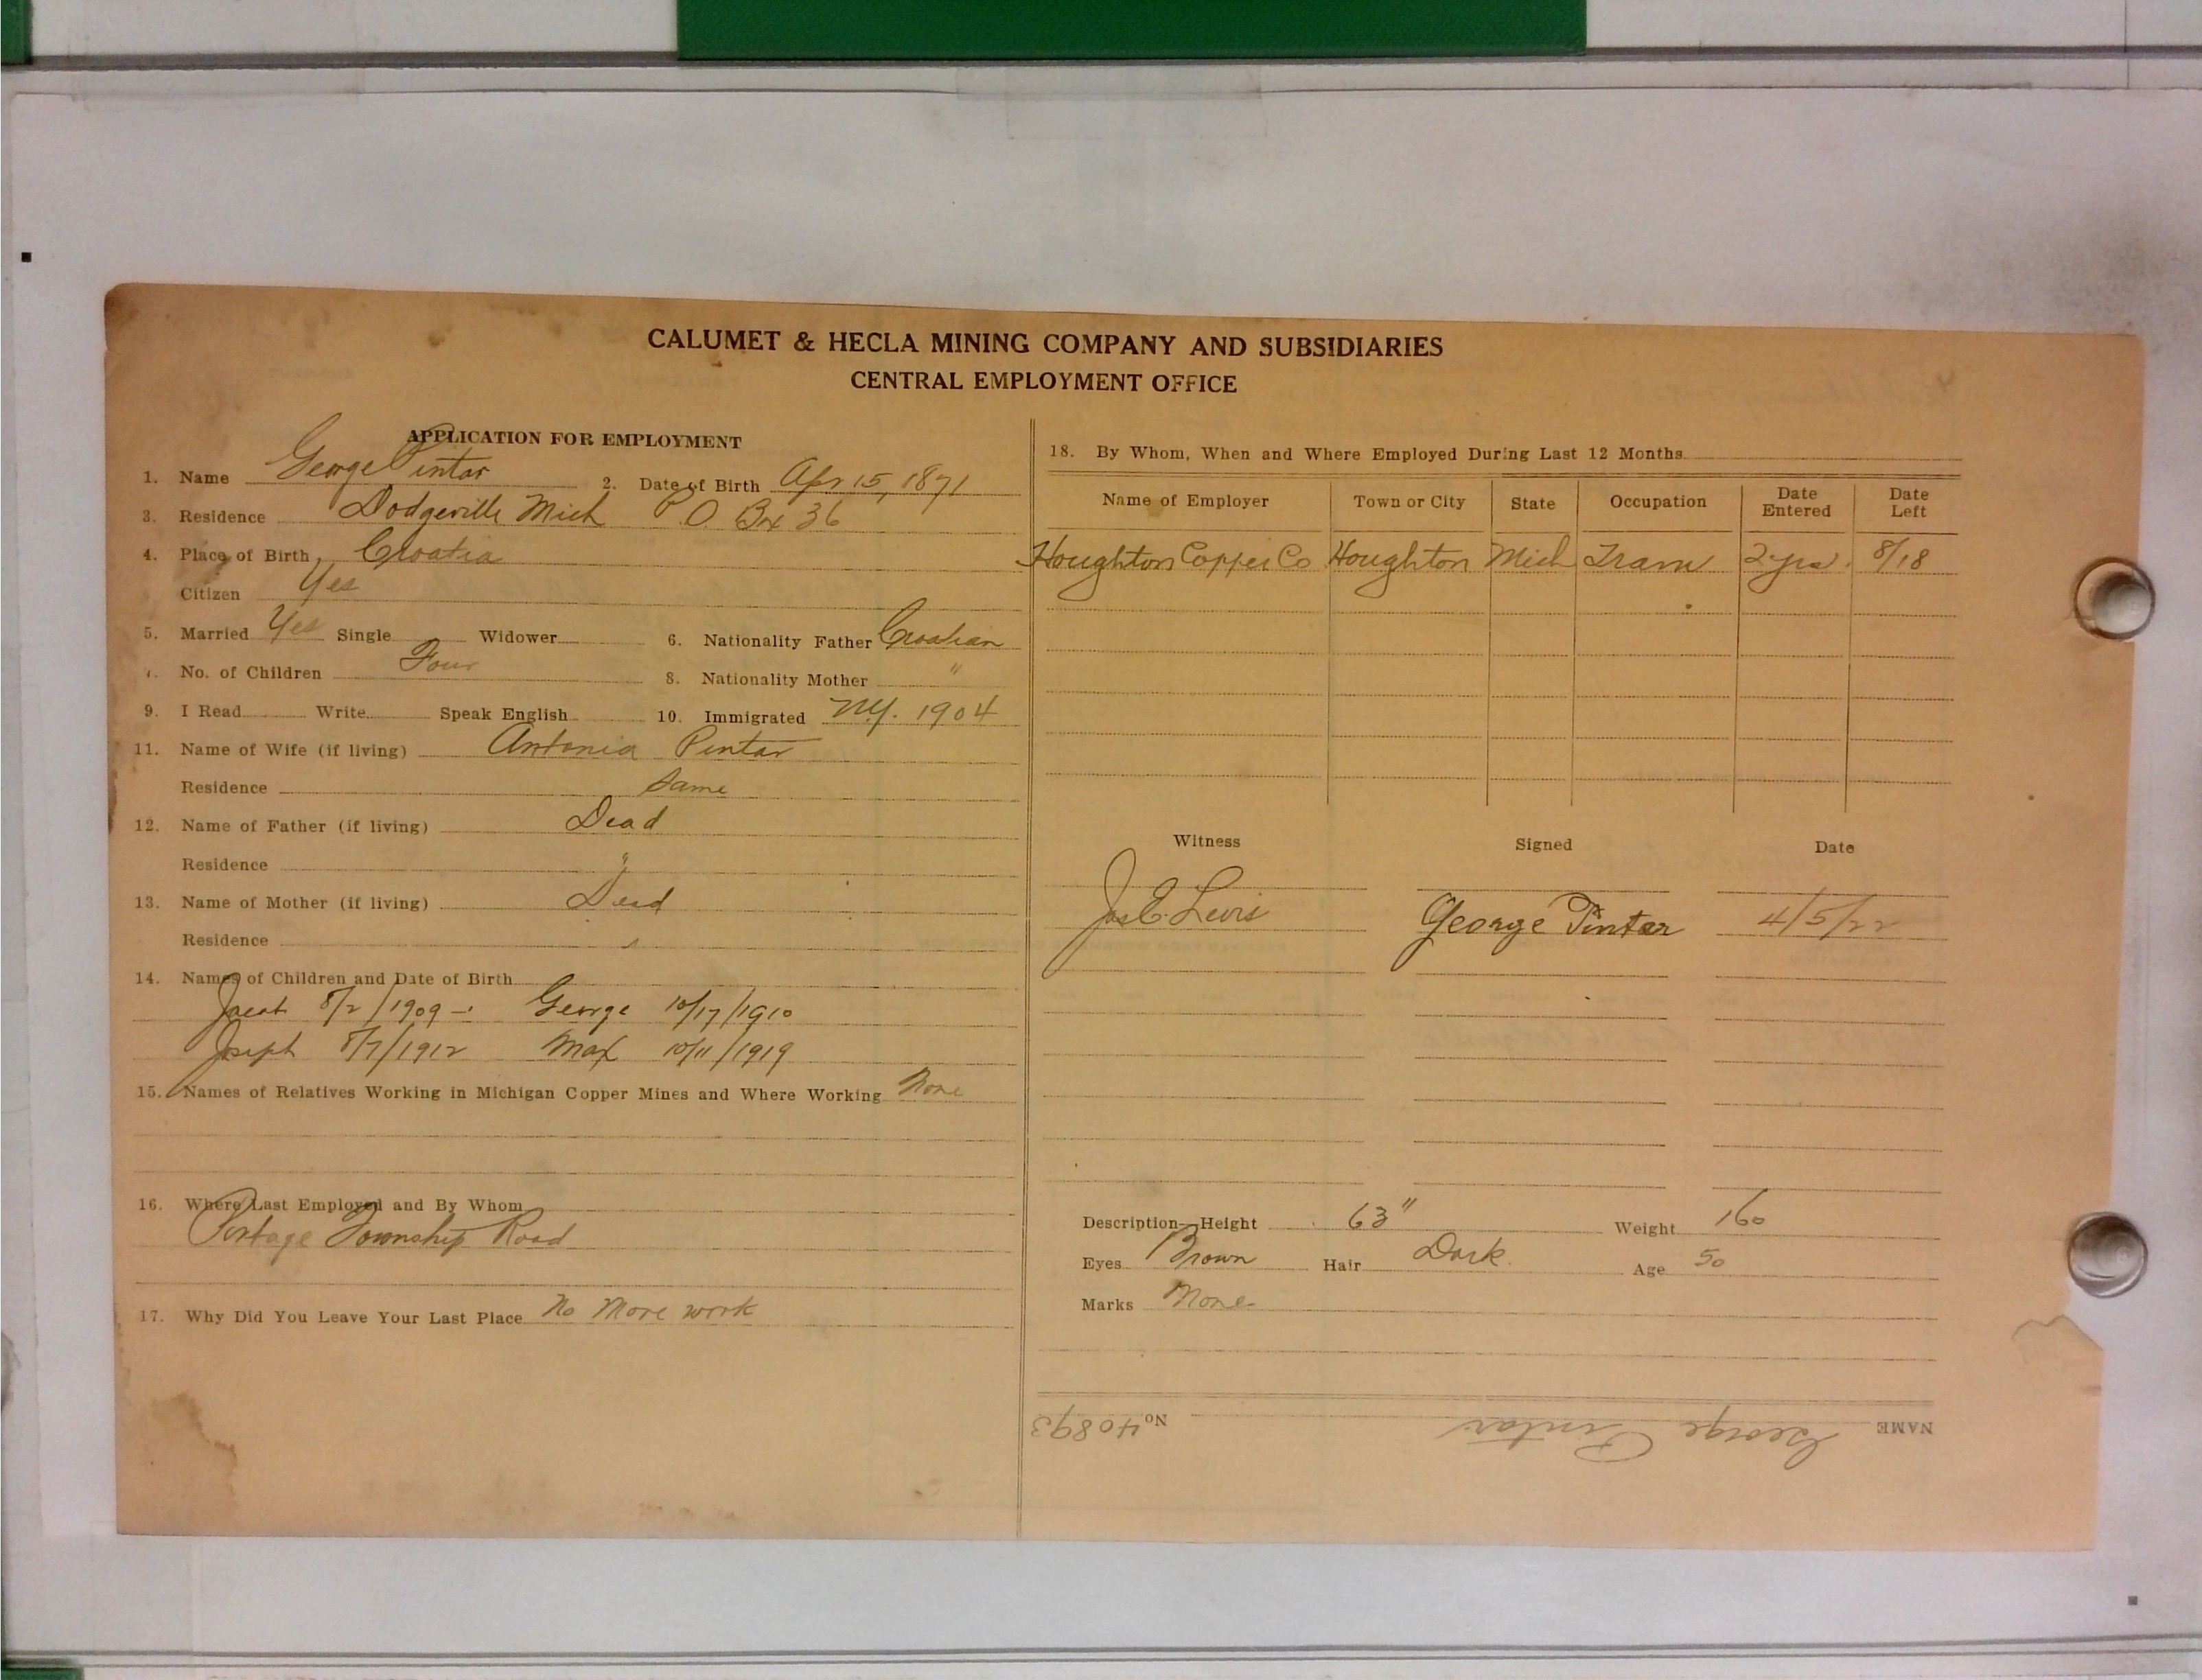 CALUMET & HECLA MINING COMPANY AND SUBSIDIARIES
CENTRAL EMPLOYMENT OFFICE
APPLICATION FOR EMPLOYMENT
1. Name George Pintar 2. Date of Birth Apr 15, 1871
3. Residence Dodgeville Mich P.O. Box 36
4. Place of Birth Croatia
Citizen Yes
5. Married Yes Single Widower 6. Nationality Father Croatian
7. No. of Children Four 8. Nationality Mother "
9. I Read Write Speak English 10. Immigrated N.Y. 1904
11. Name of Wife (if living) Antonia Pintar
Residence Same
12. Name of Father (if living) Dead
Residence "
13. Name of Mother (if living) Dead
Residence
14. Names of Children and Date of Birth
Jacob 8/2/1909 - George 10/17/1910
Joseph 8/7/1912 Max 10/11/1919
15. Names of Relatives Working in Michigan Copper Mines and Where Working None
16. Where Last Employed and By Whom
Portage Township Road
17. Why Did You Leave Your Last Place No More work
18. By Whom, When and Where Employed During Last 12 Months
Name of Employer Town or City State Occupation Date Entered Date Left
Houghton Copper Co Houghton Mich Tram 2 yrs. 8/18
Witness Signed Date
Jos E. Lewis George Pintar 4/5/22
Description—Height 63" Weight 160
Eyes Brown Hair Dark Age 50
Marks None
NAME George Pintar No 40893